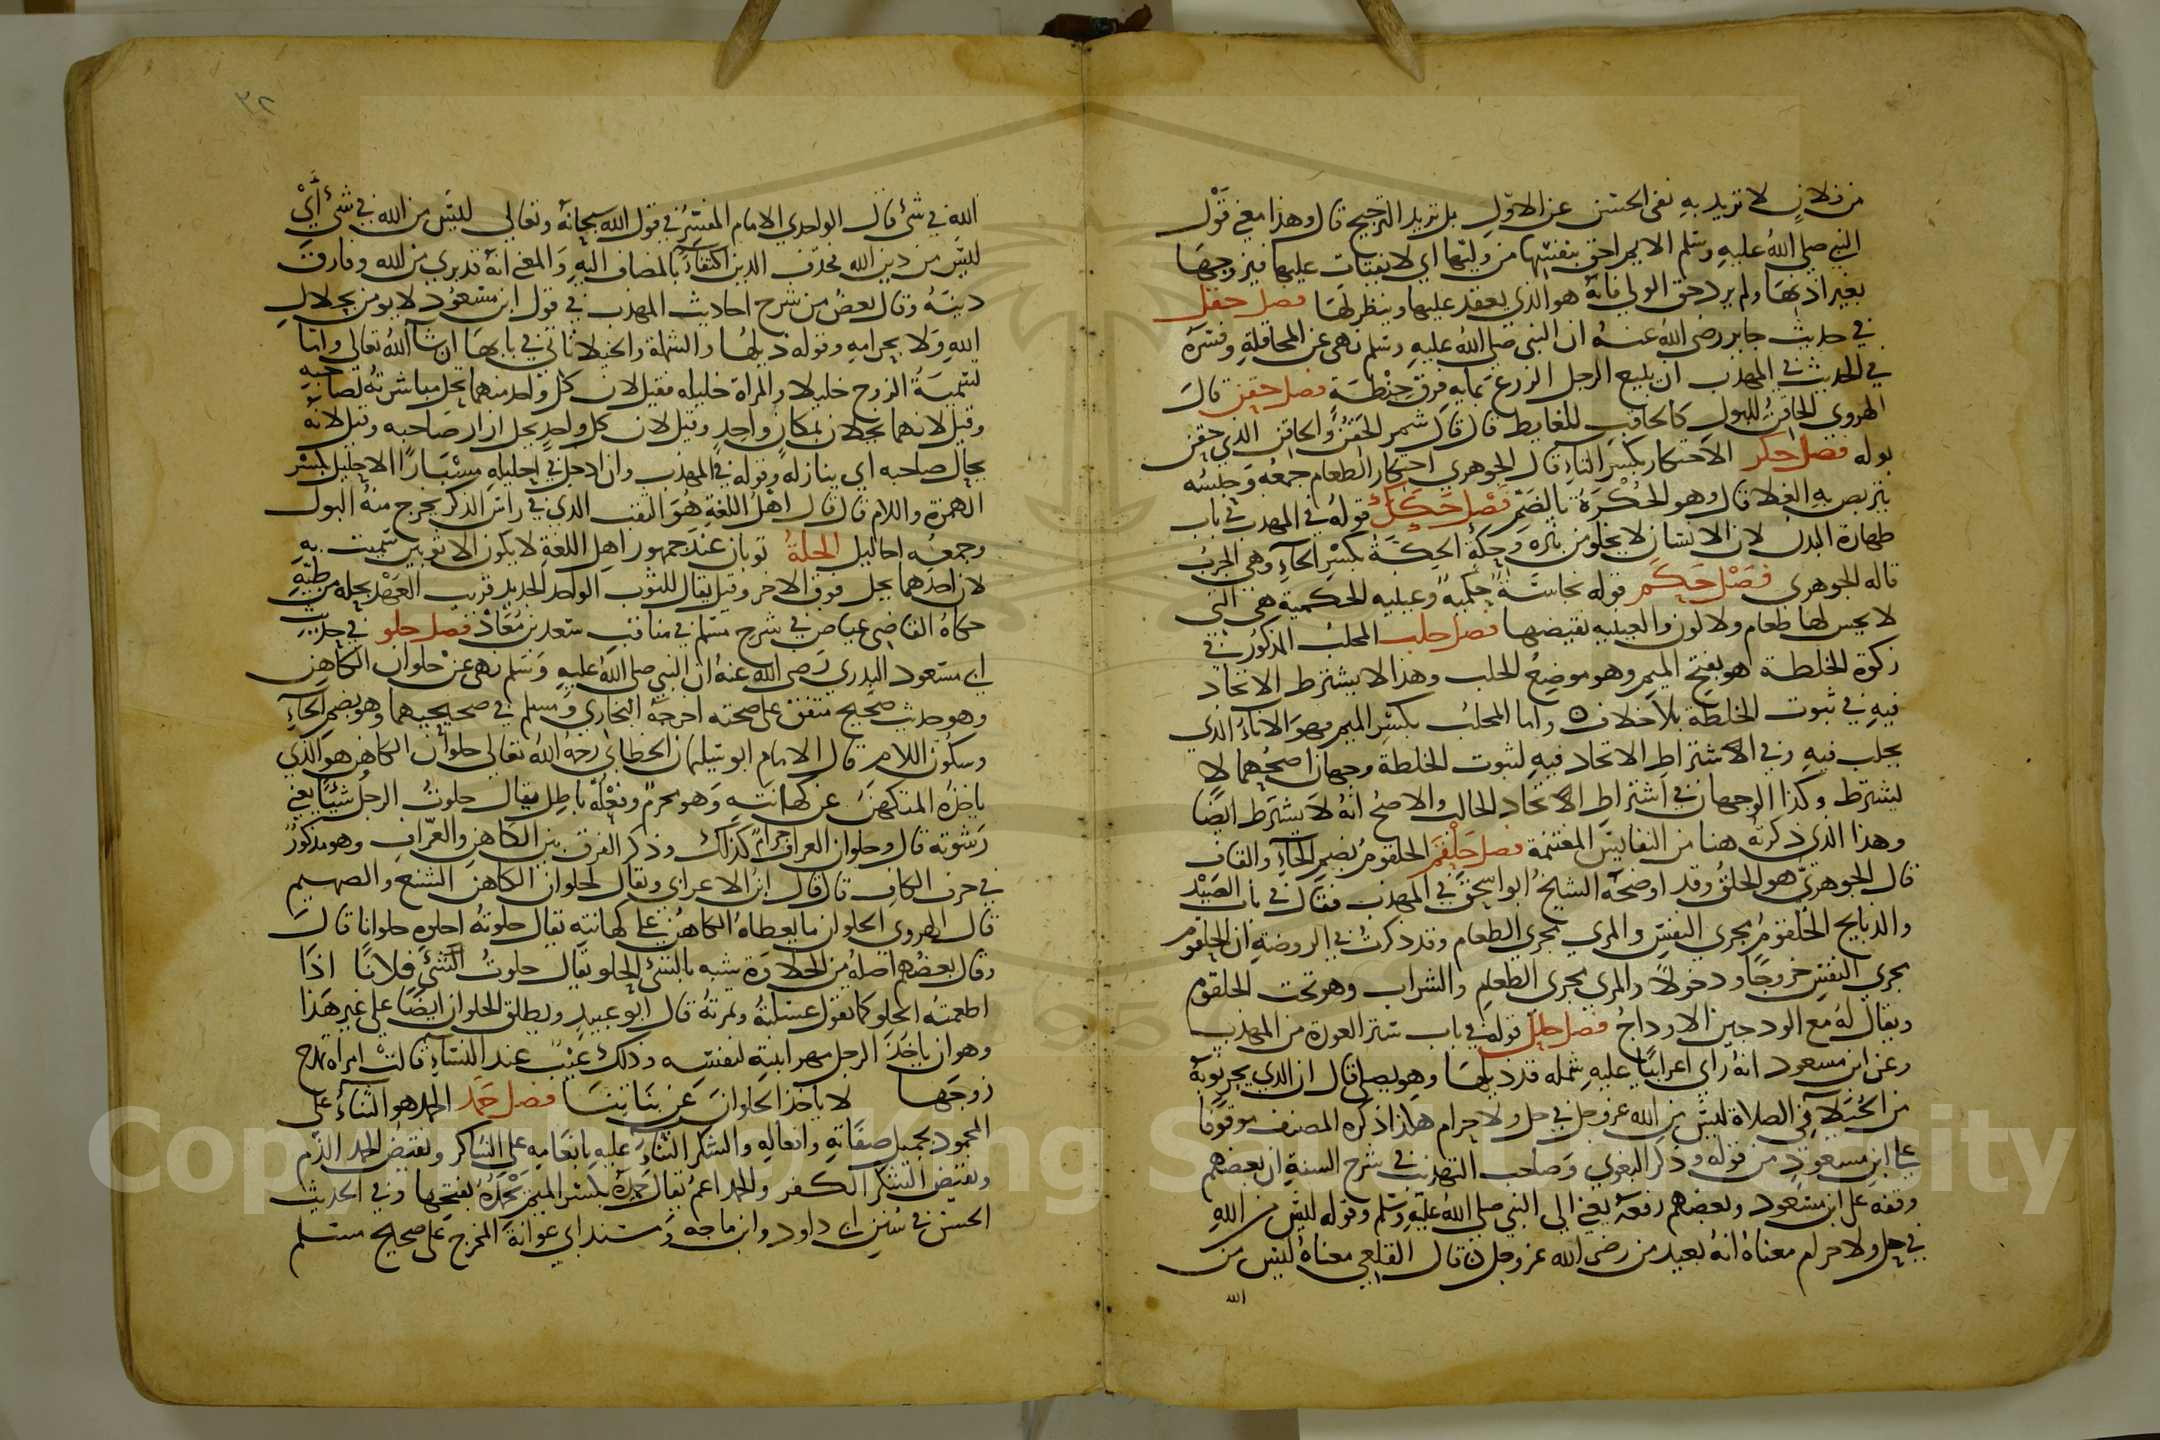 من فلان لا تريد به نفى الحسن عن الاول بل تريد الترجيح قال وهذا معنى قول
النبي صلى الله عليه وسلم الايم احق بنفسها من وليها اي لا يفتات عليها فيزوجها
بغير اذنها ولم يرد حق الولي فانه هو الذي يعقد عليها وينظر لها فصل حقل
في حديث جابر رضى الله عنه ان النبى صلى الله عليه وسلم نهى عن المحاقلة وفسره
في الحديث في المهذب ان يبيع الرجل الزرع بمايه فرق حنطة فصل حقن قال
الهروي الحاقن للبول كالحاقب للغايط قال قال شمر الحقن والحاقن الذي حقن
بوله فصل حكر الاحتكار بكسر التاء قال الجوهري احتكار الطعام جمعه وحبسه
يتربص به الغلا قال وهو الحكرة بالضم فصل حكك قوله في المهذب في باب
طهارة البدن لان الانسان لا يخلو من بثره وحكة الحكة بكسر الحآء وهي الجرب
قاله الجوهري فصل حكم قوله نجاسة حكمية وعينيه الحكمية هي التي
لا يحس لها طعام ولا لون والعينيه نقيضها فصل حلب المحلب المذكور في
زكوة الخلطة هو بفتح الميم وهو موضع الحلب وهذا لا يشترط الاتحاد
فيه في ثبوت الخلطة بلا خلاف ٥ واما المحلب بكسر الميم فهو الاناء الذي
يحلب فيه وفي الاشتراط الاتحاد فيه لثبوت الخلطة وجهان اصحهما لا
يشترط وكذا الوجهان في اشتراط الاتحاد الحالب والاصح انه لا يشترط ايضا
وهذا الذي ذكرته هنا من النفايس المغتنمة فصل حلقم الحلقوم بضم الحآء والقاف
قال الجوهري هو الحلق وقد اوضحه الشيخ ابو اسحق في المهذب فقال في باب الصيد
والذبايح الحلقوم مجري النفس والمري مجري الطعام وقد ذكرت في الروضة ان الحلقوم
مجري النفس خروجا ودخولا والمري مجري الطعام والشراب وهو تحت الحلقوم
ويقال له مع الودجين الاوداج فصل حلل قوله في باب ستر العورة من المهذب
وعن ابن مسعود انه راي اعرابيا عليه شمله قد ذيلها وهو يصلي قال ان الذي يجر ثوبه
من الخيلآء في الصلاة ليس من الله عز وجل في حل ولا حرام هاذا ذكره المصنف موقوفا
على ابن مسعود من قوله وذكر البغوي وصاحب التهذيب في شرح السنة ان بعضهم
وقفه على ابن مسعود وبعضهم رفعه يعني الى النبي صلى الله عليه وسلم وقوله ليس من الله
في حل ولا حرام معناه انه بعيد من رضى الله عز وجل ٥ قال القلعي معناه ليس من
الله
٣٢
الله في شئ قال الواحدي الامام المفسر في قول الله سبحانه وتعالى فليس من الله في شئ أي
ليس من دين الله فحذف الدين اكتفآء بالمضاف اليه والمعنى انه قد بري من الله وفارق
دينه وقال بعض من شرح احاديث المهذب في قول ابن مسعود لا يومن بحلال
الله ولا بحرامه وقوله ذيلها والشملة والخيلا تاتي في بابها ان شآ الله تعالى واما
تسمية الزوج خليلا والمراة حليله فقيل لان كل واحد منهما يحل مباشرته لصاحبه
وقيل لانهما يحلان بمكان واحد وقيل لان كل واحد يحل ازار صاحبه وقيل لانه
يحال صاحبه اي ينازله وقوله في المهذب وان ادخل في احليله مسبارا الاحليل بكسر
الهمزة واللام قال قال اهل اللغة هو الثقب الذي في راس الذكر يخرج منه البول
وجمعه احاليل الحلة ثوبان عند جمهور اهل اللغة لا يكون الا ثوبين سميت به
لان احدهما يحل فوق الاخر وقيل يقال للثوب الواحد الجديد قريب العهد بحله من طيه
حكاه القاضي عياض في شرح مسلم في مناقب سعد بن معاذ فصل حلو في حديث
ابي مسعود البدري رضى الله عنه ان النبي صلى الله عليه وسلم نهى عن حلوان الكاهن
وهو حديث صحيح متفق على صحته اخرجه البخاري ومسلم في صحيحيهما وهو بضم الحآء
وسكون اللام قال الامام ابو سليمان الخطابي رحمه الله تعالى حلوان الكاهن هو الذي
ياخذه المتكهن عن كهانته وهو محرم وفعله باطل يقال حلوت الرجل شيئا يعني
رشوته قال وحلوان العراف حرام كذلك وذكر الفرق بين الكاهن والعراف وهو مذكور
في حرف الكاف قال قال ابن الاعرابي ويقال لحلوان الكاهن الشنع والصهيم
قال الهروي الحلوان ما يعطاه الكاهن على كهانته يقال حلوته احلوه حلوانا قال
وقال بعضهم اصله من الحلاوة يشبه بالشئ الحلو يقال حلوت الشئ فلانا اذا
اطعمته الحلو كما تقول عسلته وتمرته قال ابو عبيد ويطلق الحلوان ايضا على غير هذا
وهو ان ياخذ الرجل مهر ابنته لنفسه وذلك عيب عند النسآء قالت امراة تمدح
زوجها لا ياخذ الحلوان عن بناتنا فصل حمد الحمد هو الثنآء على
المحمود بجميل صفاته وافعاله والشكر الثنآء عليه بانعامه على الشاكر ونقيض الحمد الذم
ونقيض الشكر الكفر والحمد اعم يقال حمده بكسر الميم يحمده بفتحها وفي الحديث
الحسن في سنن ابي داود وابن ماجه ومسند ابي عوانة المخرج على صحيح مسلم